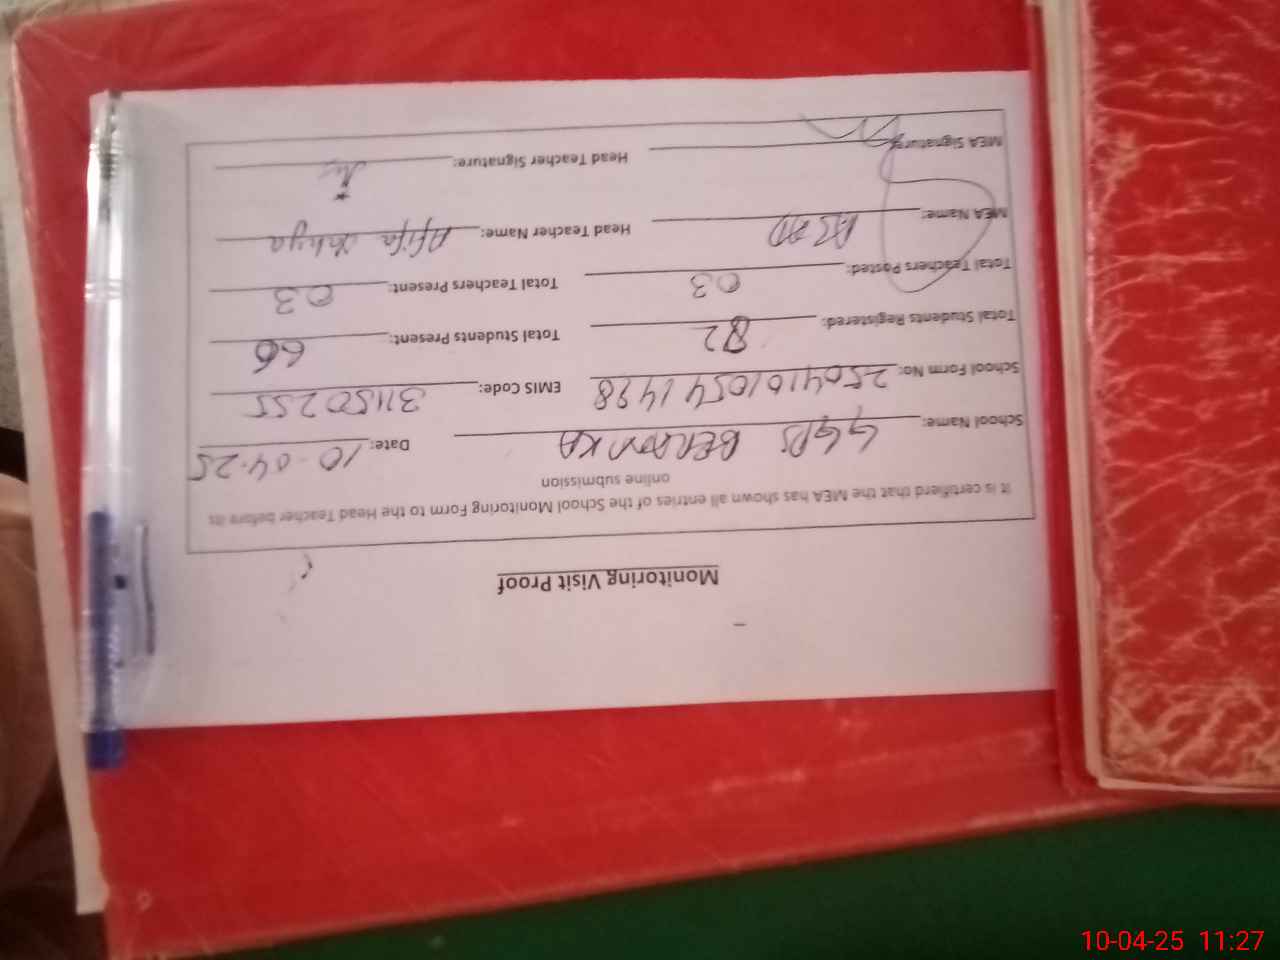 Monitoring Visit Proof
It is certifierd that the MEA has shown all entries of the School Monitoring Form to the Head Teacher before its
online submission
School Name: GGPS Date: 10-04-25
School Form No: EMIS Code: 31150255
Total Students Registered: 82 Total Students Present: 66
Total Teachers Posted: 03 Total Teachers Present: 03
MEA Name: ASAD Head Teacher Name: Afifa
MEA Signature: Head Teacher Signature:
10-04-25 11:27